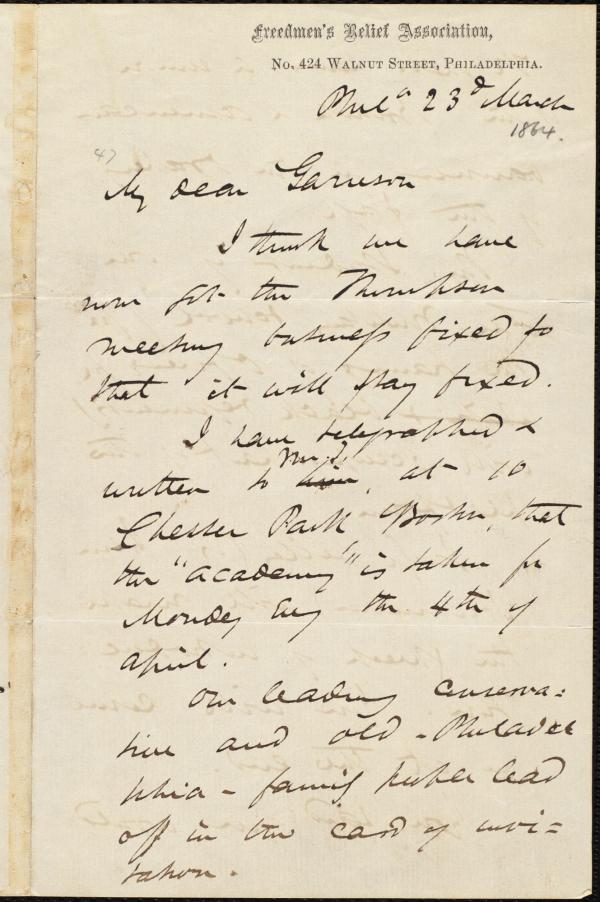 Freedmen's Relief Association,
No. 424 Walnut Street, Philadelphia.
Phila 23d March
1864.
47
My dear Garrison
I think we have
now got the Thompson
meeting business fixed so
that it will stay fixed.
I have telegraphed &
written to him Mr. T., at 10
Chester Park Boston, that
the "academy" is taken for
Monday Evg the 4th of
april.
Our leading conserva=
tive and old-Philadel
phia-family people lead
off in the card of invi=
tation.